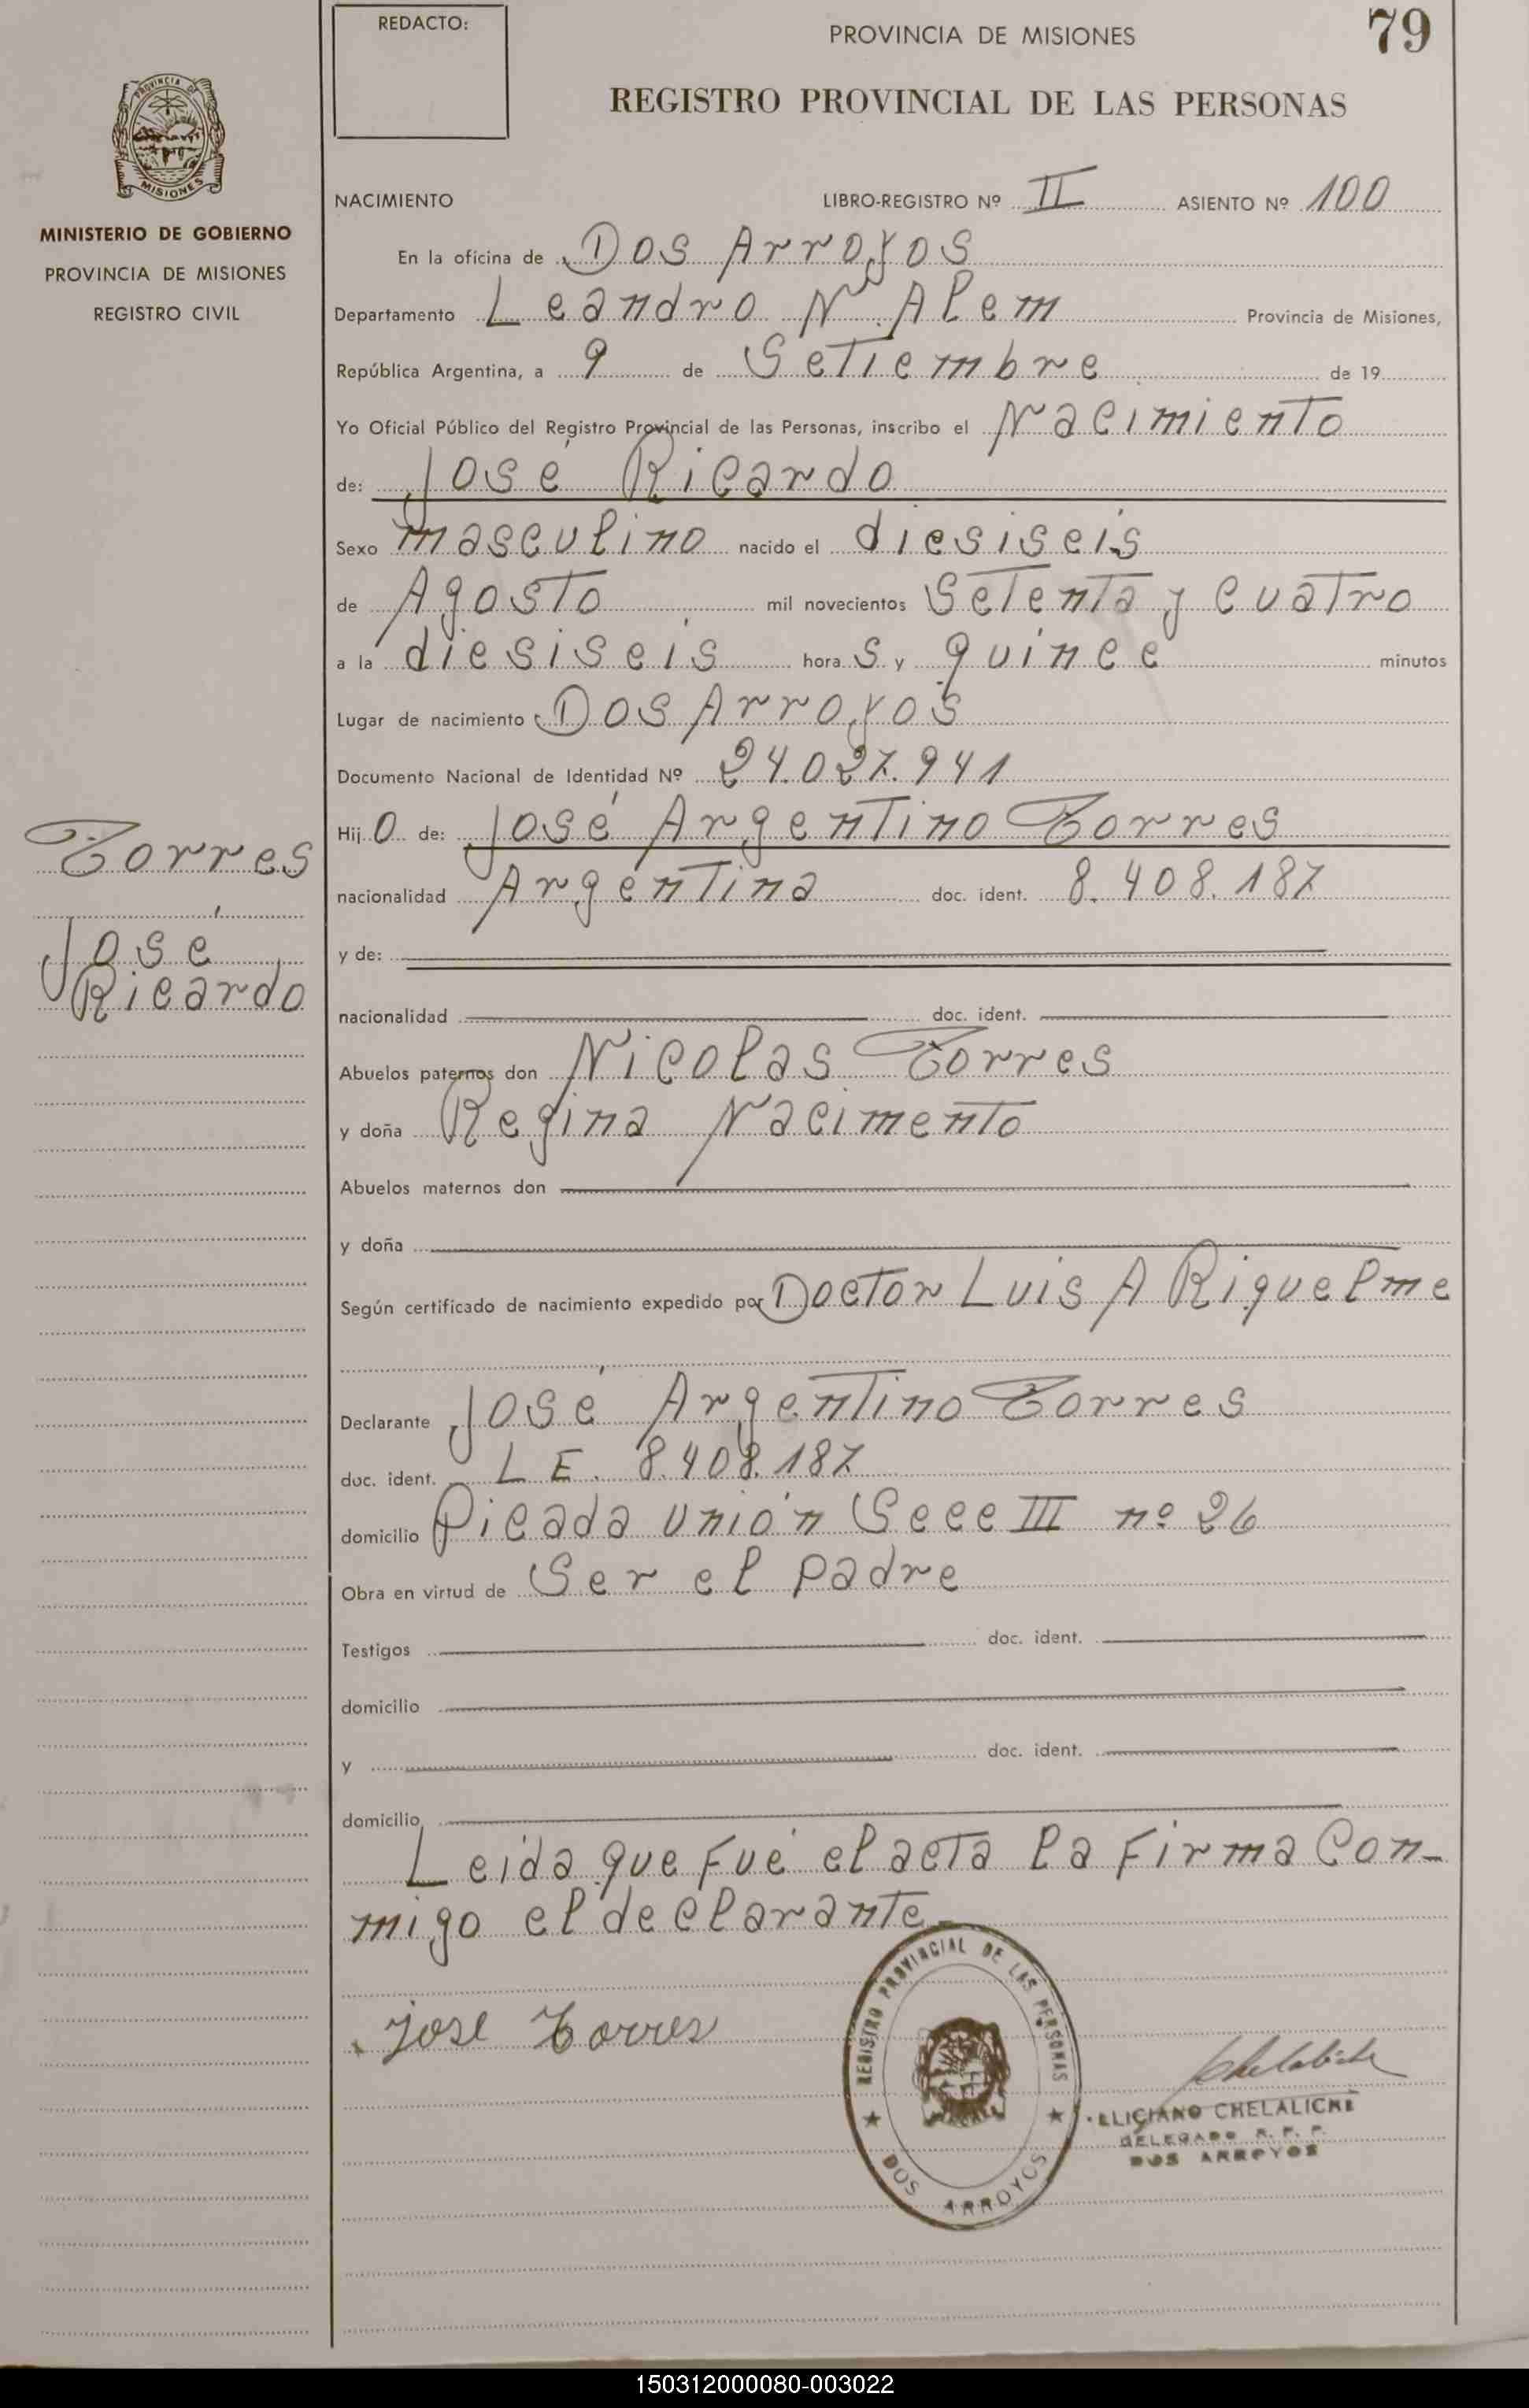 REDACTO:
PROVINCIA DE MISIONES
79
REGISTRO PROVINCIAL DE LAS PERSONAS
PROVINCIA DE
MISIONES
MINISTERIO DE GOBIERNO
PROVINCIA DE MISIONES
REGISTRO CIVIL
NACIMIENTO LIBRO-REGISTRO Nº II ASIENTO Nº 100
En la oficina de Dos Arroyos
Departamento Leandro N. Alem Provincia de Misiones,
República Argentina, a 9 de Setiembre de 19
Yo Oficial Público del Registro Provincial de las Personas, inscribo el Nacimiento
de: José Ricardo
Sexo masculino nacido el diesiseis
de Agosto mil novecientos Setenta y cuatro
a la diesiseis hora s y quince minutos
Lugar de nacimiento Dos Arroyos
Documento Nacional de Identidad Nº 24.027.941
Hij o de: José Argentino Torres
nacionalidad Argentina doc. ident. 8.408.187
y de:
nacionalidad doc. ident.
Abuelos paternos don Nicolas Torres
y doña Regina Nacimento
Abuelos maternos don
y doña
Según certificado de nacimiento expedido por Doctor Luis A Riquelme
Declarante José Argentino Torres
doc. ident. L E. 8.408.187
domicilio Picada unión Secc III nº 26
Obra en virtud de Ser el padre
Testigos doc. ident.
domicilio
y doc. ident.
domicilio
Leida que fué el acta la firma con-
migo el declarante
Torres
José
Ricardo
jose Torres
REGISTRO PROVINCIAL DE LAS PERSONAS
DOS ARROYOS
Chelaliche
ELICIANO CHELALICHE
DELEGADO R. P. P.
DOS ARROYOS
150312000080-003022